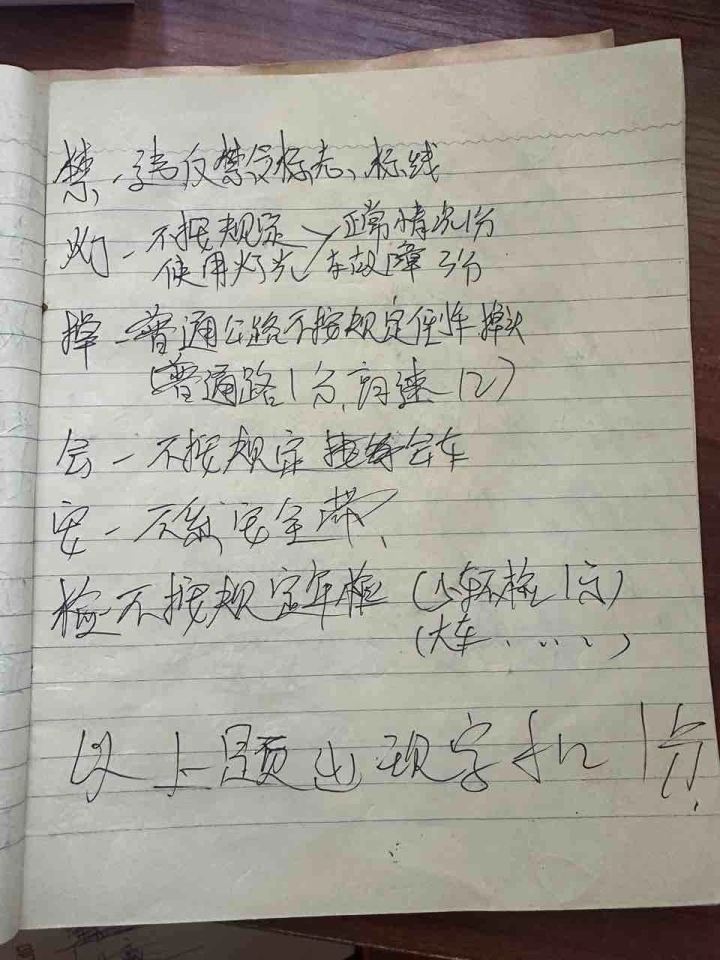 禁-违反禁令标志、标线
灯-不按规定 正常情况1分
使用灯光 车故障3分
掉-普通公路不按规定倒车掉头
(普通路1分、高速12)
会-不按规定会车
安-不系安全带、
检-不按规定年检 (小车不检1分)
(大车.....)
以上题出现字扣1分